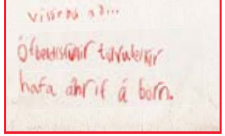 vísindi að...
Ofbeldisfullir tölvuleikir
hafa áhrif á börn.